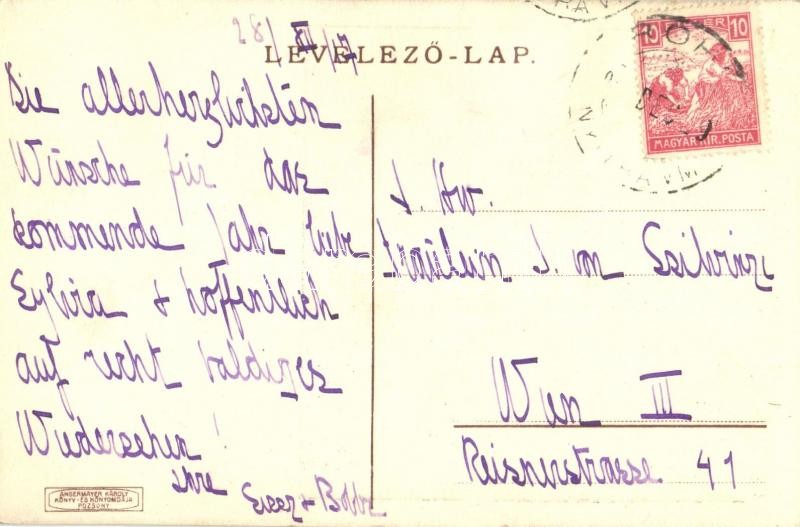 28/XII/17
LEVELEZŐ-LAP.
Die allerherzlichsten
Wünsche für das
kommende Jahr liebe
Sylvia & hoffentlich
auf recht baldiges
Wiedersehen!
Ihre
& Bobby
I. Hw.
Fräulein S. von
Wien III
Reisnerstrasse 41
10 10
MAGYAR KIR. POSTA
ANGERMAYER KÁROLY
KÖNYV- ÉS KŐNYOMDÁJA
POZSONY